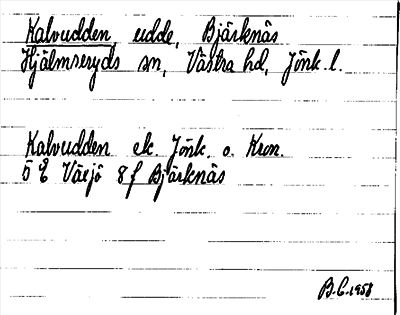 Kalvudden, udde, Bjärknäs
Hjälmseryds sn, Västra hd, Jönk. l.
Kalvudden ek. Jönk. o. Kron.
5 E Växjö 8 f Bjärknäs
B.C. 1958